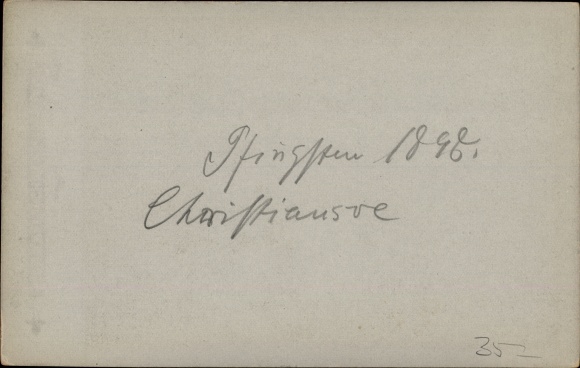 Pfingsten 1898.
Christiansoe
35 –